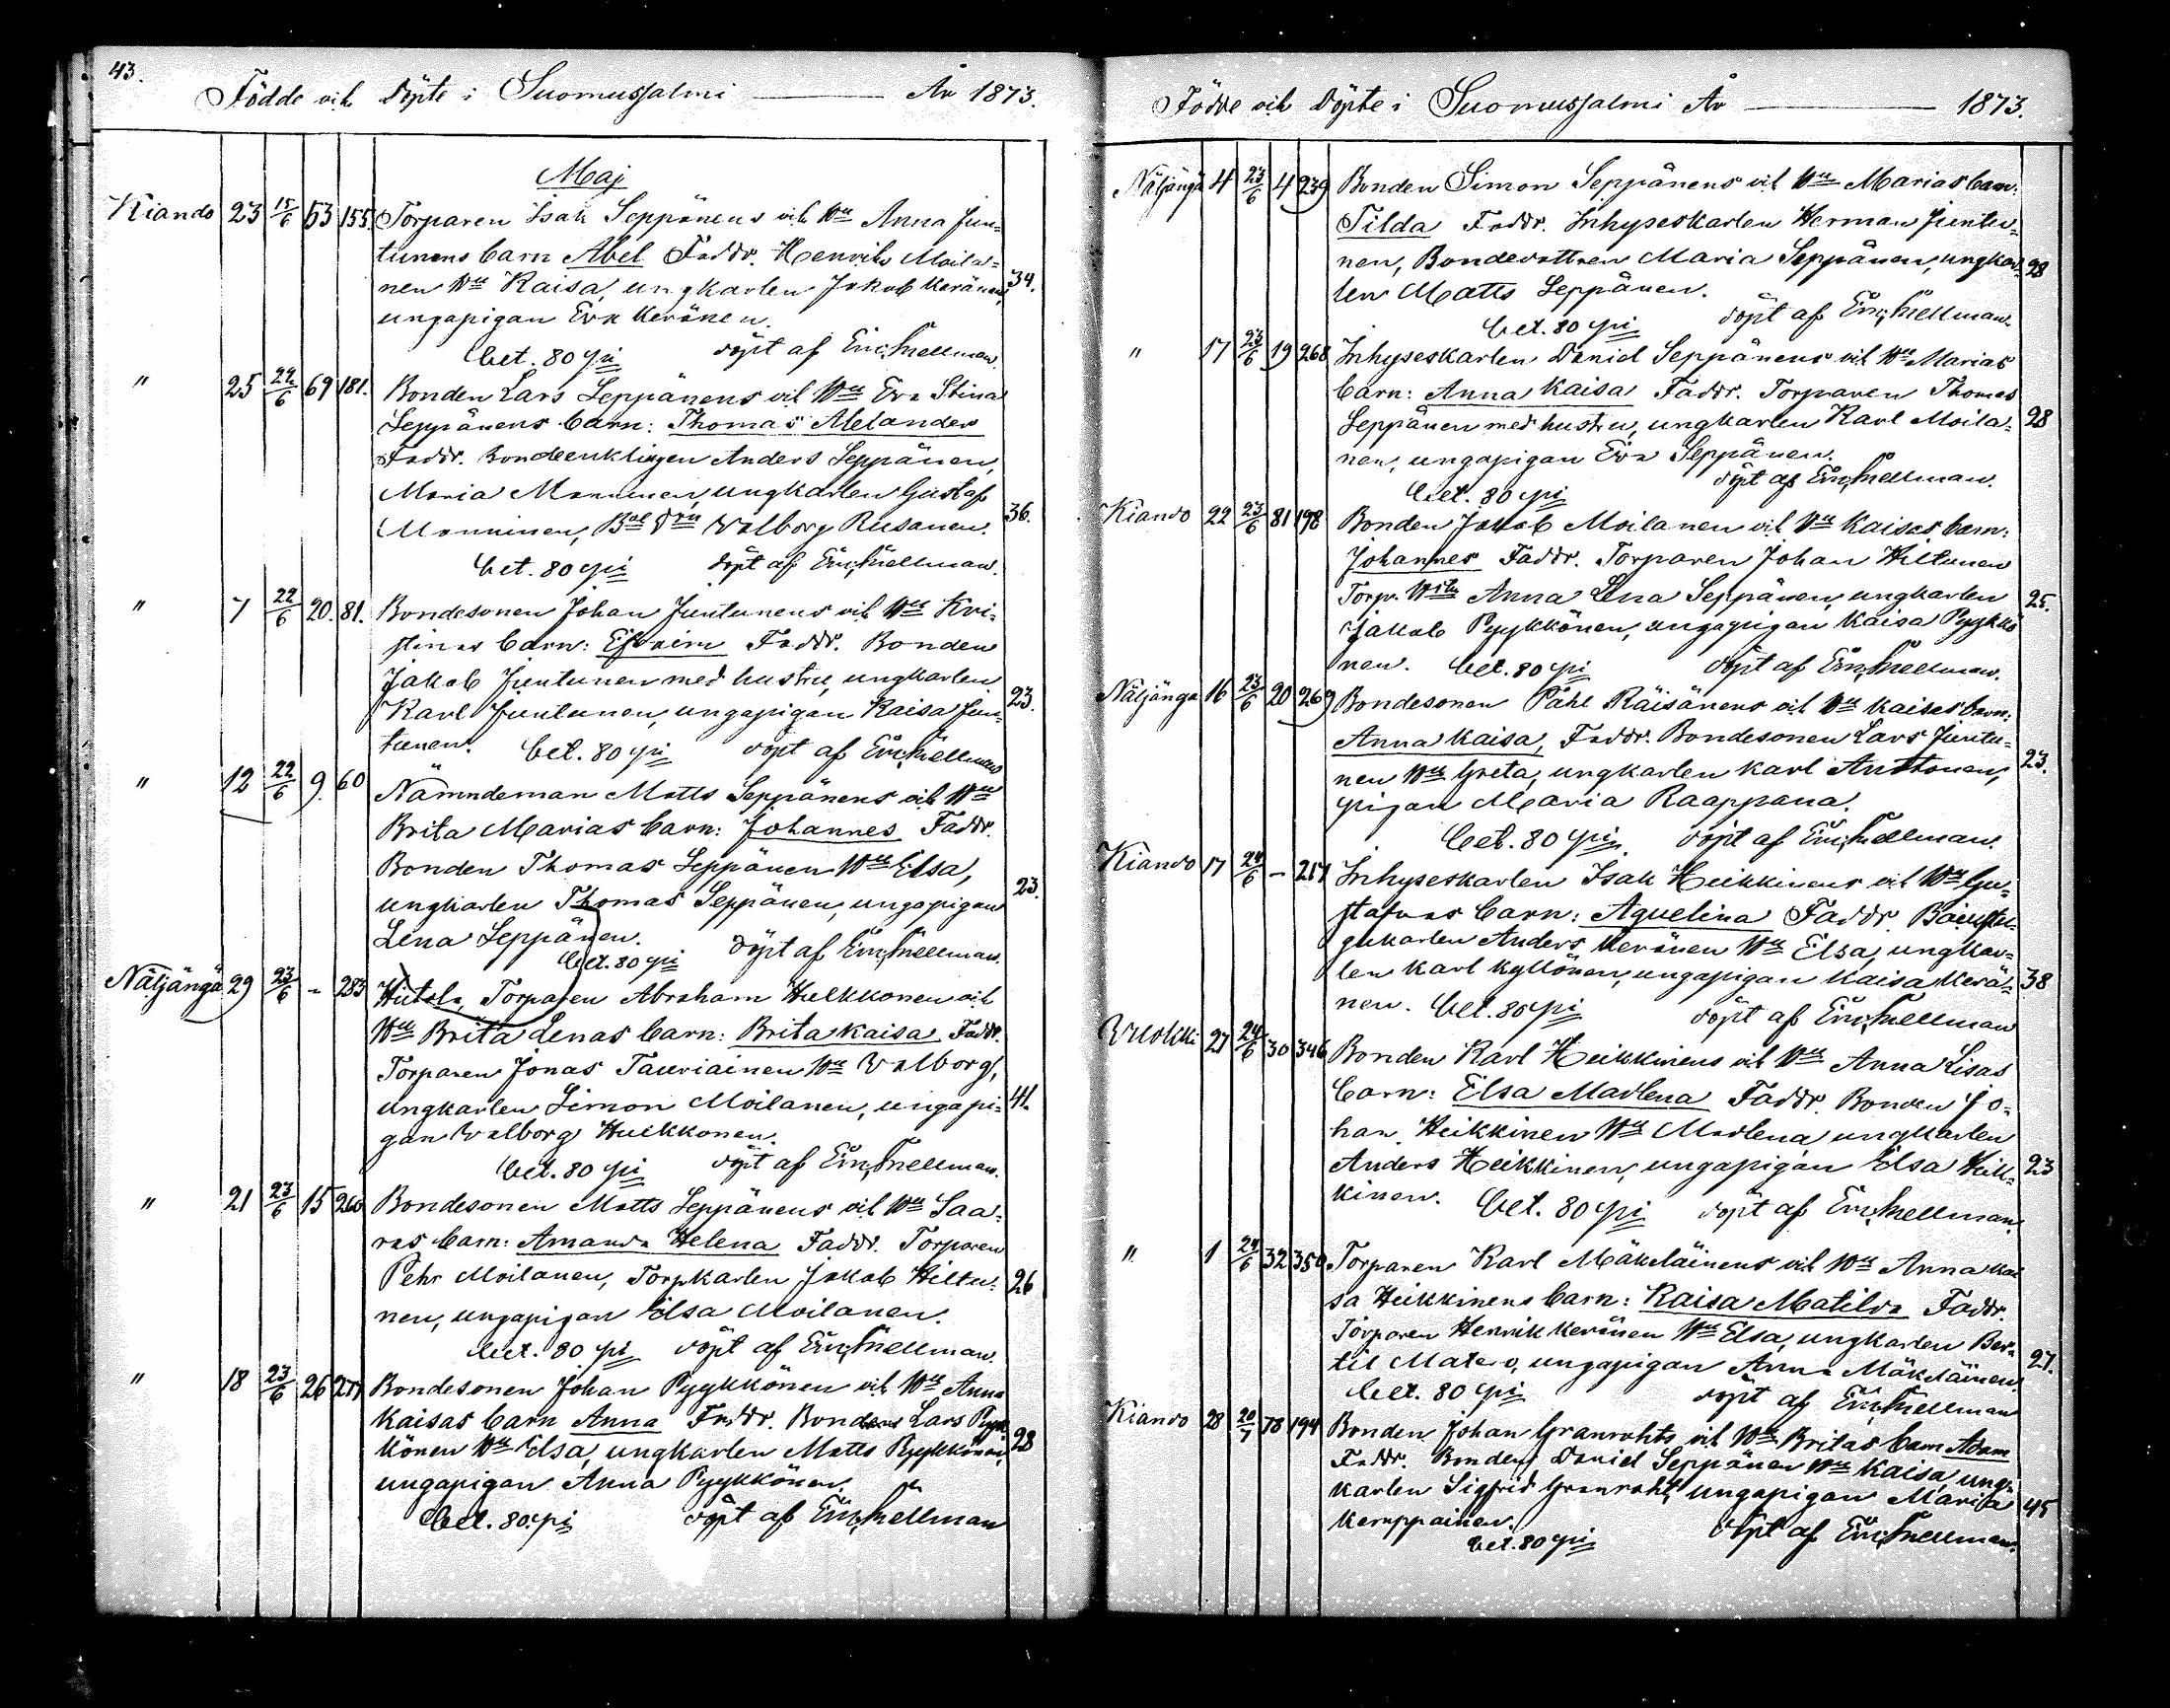 43.
Födde och Döpte i Suomussalmi År 1873.
Maj
Kiando 23 15/6 53 155. Torparen Isak Seppänens och Hu Anna Jun-
tunens barn Abel Faddr. Henrik Moila-
nen Hu Kaisa, ungkarlen Jakob Keränen, 34.
ungapigan Eva Keränen.
bet. 80 pi döpt af Eric Snellman.
" 25 22/6 69 181. Bonden Lars Seppänens och Hu Eva Stina
Seppänens barn: Thomas Alelander
Faddr. Bondeenklingen Anders Seppänen,
Maria Manninen, ungkarlen Gustaf
Manninen, Bde Dtn Walborg Rusanen. 36.
bet. 80 pi döpt af Eric Snellman.
" 7 22/6 20. 81. Bondesonen Johan Juntunens och Hu Kri-
stinas barn: Efraim Faddr. Bonden
Jakob Juntunen med hustru, ungkarlen
Karl Juntunen, ungapigan Kaisa Jun- 23.
tunen. bet. 80 pi döpt af Eric Snellman
" 12 22/6 9. 60 Nämndeman Matts Seppänens och Hu
Brita Marias barn: Johannes Faddr.
Bonden Thomas Seppänen Hu Elsa,
ungkarlen Thomas Seppänen, ungapigan 23.
Lena Seppänen.
bet. 80 pi döpt af Eric Snellman.
Näljängä 29 23/6 - 283 Torparen Abraham Hulkkonen och
Hu Brita Lenas barn: Brita Kaisa Faddr.
Torparen Jonas Tauriainen Hu Walborg,
ungkarlen Simon Moilanen, ungapi- 41.
gan Walborg Hulkkonen.
bet. 80 pi döpt af Eric Snellman.
" 21 23/6 15 260 Bondesonen Matts Seppänens och Hu Saa-
ras barn: Amanda Helena Faddr. Torparen
Pehr Moilanen, Torpkarlen Jakob Hiltu- 26
nen, ungapigan Elsa Moilanen.
bet. 80 pi döpt af Eric Snellman.
" 18 23/6 26 277 Bondesonen Johan Pyykkönen och Hu Anna
Kaisas barn Anna Faddr. Bonden Lars Pyyk
könen Hu Elsa, ungkarlen Matts Pyykkönen, 28
ungapigan Anna Pyykkönen.
bet. 80 pi döpt af Eric Snellman
Födde och Döpte i Suomussalmi År 1873.
Näljängä 4 23/6 4 239 Bonden Simon Seppänens och Hu Marias barn:
Tilda Faddr. Inhyseskarlen Herman Juntu-
nen, Bondedottren Maria Seppänen, ungkar- 28
len Matts Seppänen.
bet. 80 pi döpt af Eric Snellman.
" 17 23/6 19 268 Inhyseskarlen Daniel Seppänens och Hu Marias
barn: Anna Kaisa Faddr. Torparen Thomas
Seppänen med hustru, ungkarlen Karl Moila- 28
nen, ungapigan Eva Seppänen.
bet. 80 pi döpt af Eric Snellman.
Kiando 22 23/6 81 198 Bonden Jakob Moilanen och Hu Kaisas barn:
Johannes Faddr. Torparen Johan Hiltunen
Torpr. Anna Lena Seppänen, ungkarlen 25.
Jakob Pyykkönen, ungapigan Kaisa Pyykkö
nen. bet. 80 pi döpt af Eric Snellman.
Näljänga 16 23/6 20 269 Bondesonen Påhl Räisänens och Hu Kaisas barn:
Anna Kaisa, Faddr. Bondesonen Lars Juntu-
nen Hu Greta, ungkarlen Karl Anttonen, 23.
pigan Maria Raappana.
bet. 80 pi. döpt af Eric Snellman.
Kiando 17 24/6 - 217 Inhyseskarlen Isak Heikkinens och Hu Gu-
stafvas barn: Aquelina Faddr.
Anders Keränen Hu Elsa, ungkar-
len Karl Kyllönen, ungapigan Kaisa Kerä- 38
nen. bet. 80 pi döpt af Eric Snellman
Vuokki 27 24/6 30 346 Bonden Karl Heikkinens och Hu Anna Lisas
barn: Elsa Madlena Faddr. Bonden Jo-
han Heikkinen Hu Madlena, ungkarlen
Anders Heikkinen, ungapigan Elsa Heik- 23
kinen. bet. 80 pi döpt af Eric Snellman.
" 1 24/6 32 350 Torparen Karl Mäkeläinens och Hu Anna Kai
sa Heikkinens barn: Kaisa Matilda Faddr.
Torparen Henrik Keränen Hu Elsa, ungkarlen Ber-
til Matero, ungapigan Anna Mäkeläinen. 27.
bet. 80 pi döpt af Eric Snellman
Kiando 28 20/7 78 194 Bonden Johan Granrohts och Hu Britas barn Adam
Faddr. Bonden Daniel Seppänen Hu Kaisa, ung-
karlen Sigfrid Granroht, ungapigan Maria 45
Kemppainen.
bet. 80 pi döpt af Eric Snellman.